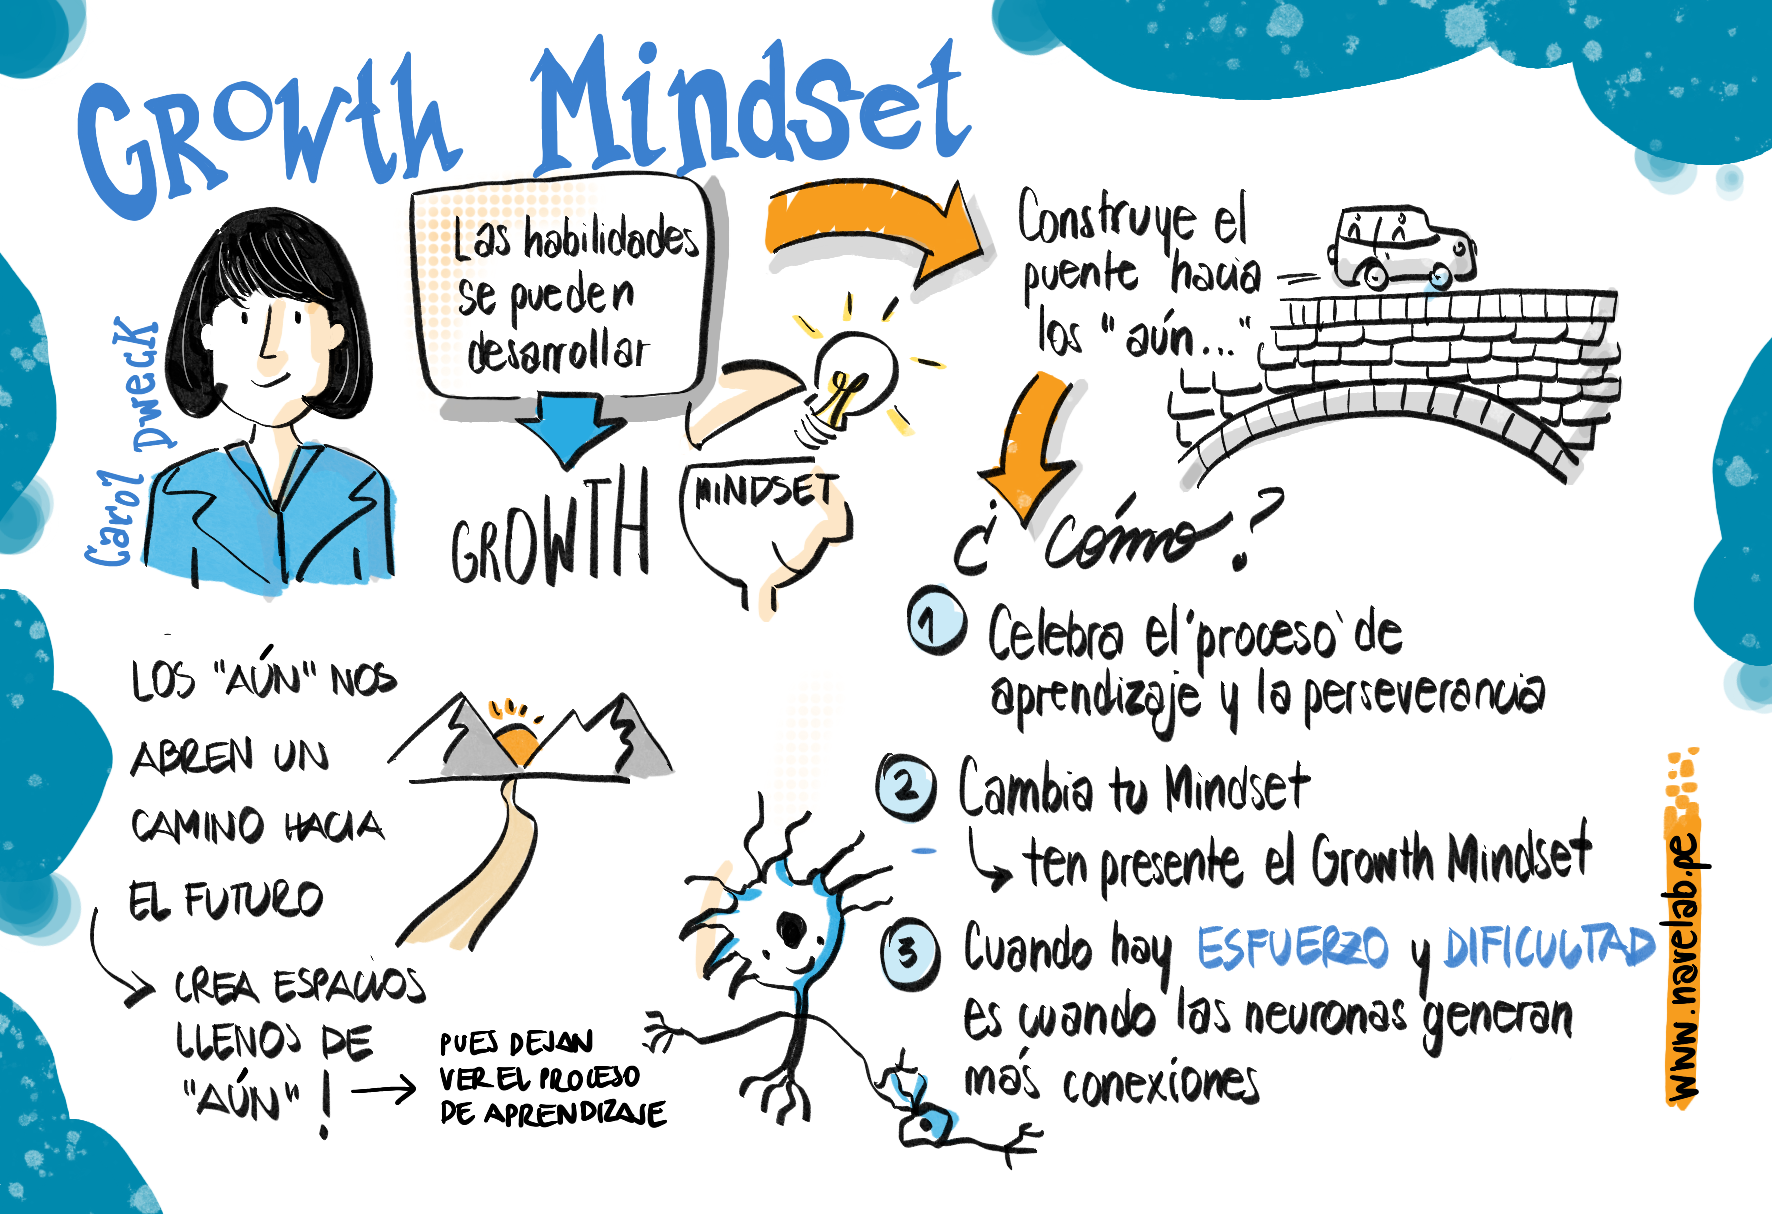 GROWth MindSet
Carol DwecK
Las habilidades
se pueden
desarrollar
GROWTH
MINDSET
Construye el
puente hacia
los "aún..."
¿ Cómo ?
1 Celebra el 'proceso' de
aprendizaje y la perseverancia
2 Cambia tu Mindset
ten presente el Growth Mindset
3 Cuando hay ESFUERZO y DIFICULTAD
es cuando las neuronas generan
más conexiones
LOS "AÚN" NOS
ABREN UN
CAMINO HACIA
EL FUTURO
CREA ESPACIOS
LLENOS DE
"AÚN" !
PUES DEJAN
VER EL PROCESO
DE APRENDIZAJE
www.navelab.pe